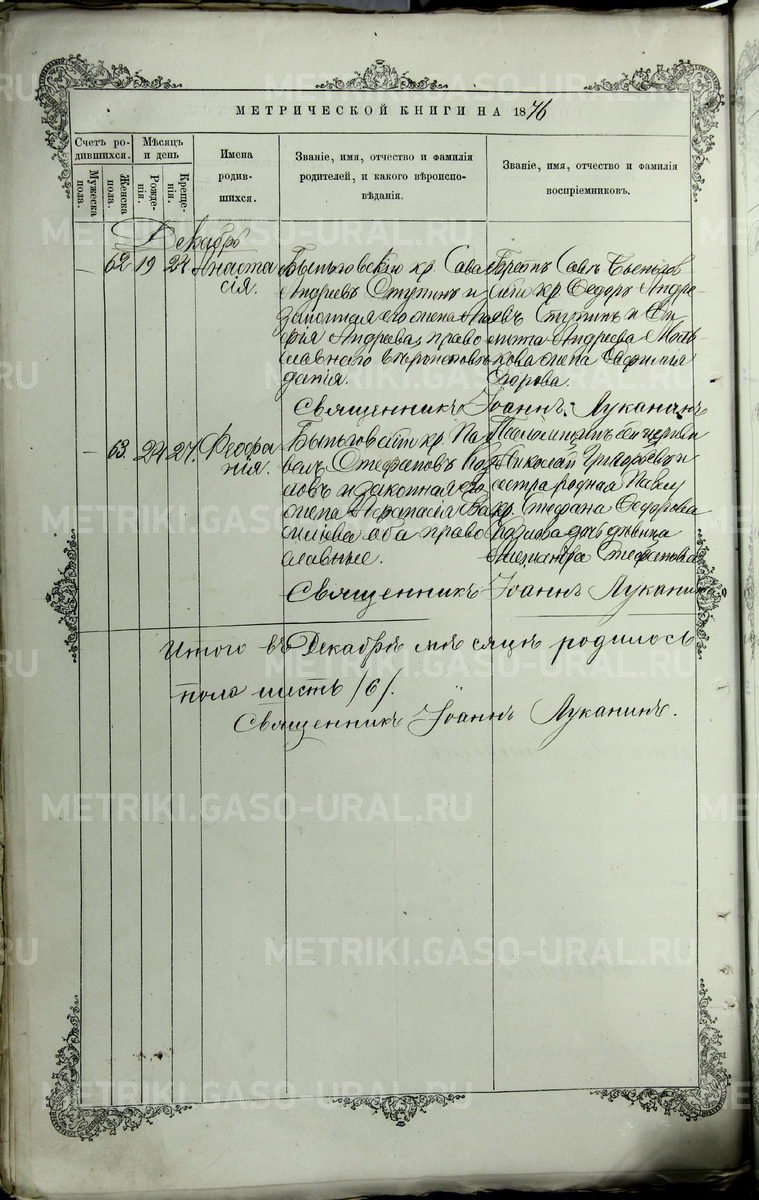 МЕТРИЧЕСКОЙ КНИГИ НА 1876
Счетъ родившихся.
Мужеска пола.
Женска пола.
Мѣсяцъ и день
Рожденія.
Крещенія.
Имена родившихся.
Званіе, имя, отчество и фамилія родителей, и какого вѣроисповѣданія.
Званіе, имя, отчество и фамилія воспріемниковъ.
Декабрь
62 19 24 Анаста
сія.
Быньговскій кр. Сава
Андреевъ Ступинъ и
законная его жена Ма
рія Андреева, право
славнаго вѣроисповѣ
данія.
кр. Ѳедоръ Андре
евъ Ступинъ и
Андреева
кова жена Евфимія
Егорова.
Священникъ Іоаннъ Луканинъ
63 24 27. Ѳеодо
нія.
Быньговскій кр. Па
велъ Стефановъ Коз
ловъ и законная его
жена Аѳанасія Ва
сильева оба право
славные.
Николай Григорьевъ и
сестра родная Павлу
кр. Стефана Ѳедорова
Козлова дочь дѣвица
Александра Стефанова
Священникъ Іоаннъ Луканинъ
Итого въ Декабрѣ мѣсяцѣ родилось
пола шесть /6/.
Священникъ Іоаннъ Луканинъ.
METRIKI.GASO-URAL.RU